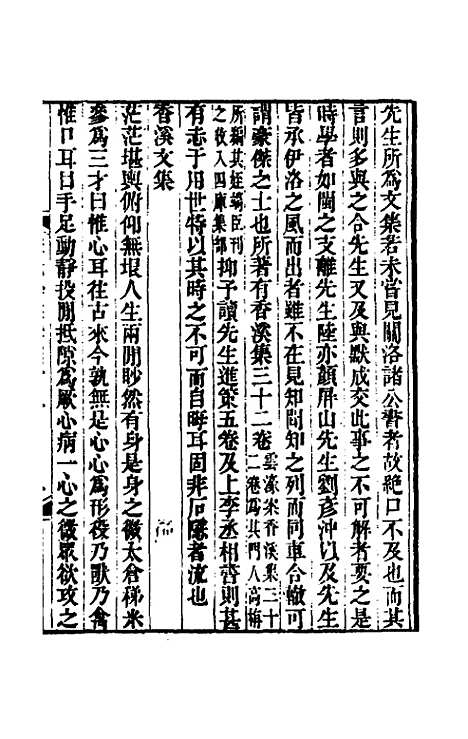 先生所爲文集若未嘗見關洛諸公書者故絕口不及也而其
言則多與之合先生又及與默成交此事之不可解者要之是
時學者如閩之支離先生陸亦顏屏山先生劉彥沖以及先生
皆承伊洛之風而出者雖不在見知聞知之列而同車合轍可
謂豪傑之士也所著有香溪集三十二卷雲濠案香溪集二十二卷爲其門人高栴
所編其姪端臣刊之收入四庫集部抑予讀先生進策五卷及上李丞相書則甚
有志于用世特以其時之不可而自晦耳固非石隱者流也
香溪文集
茫茫堪輿俯仰無垠人生兩閒眇然有身是身之微太倉稊米
參爲三才曰惟心耳往古來今孰無是心心爲形役乃獸乃禽
惟口耳目手足動靜投閒抵隙爲厥心病一心之微眾欲攻之